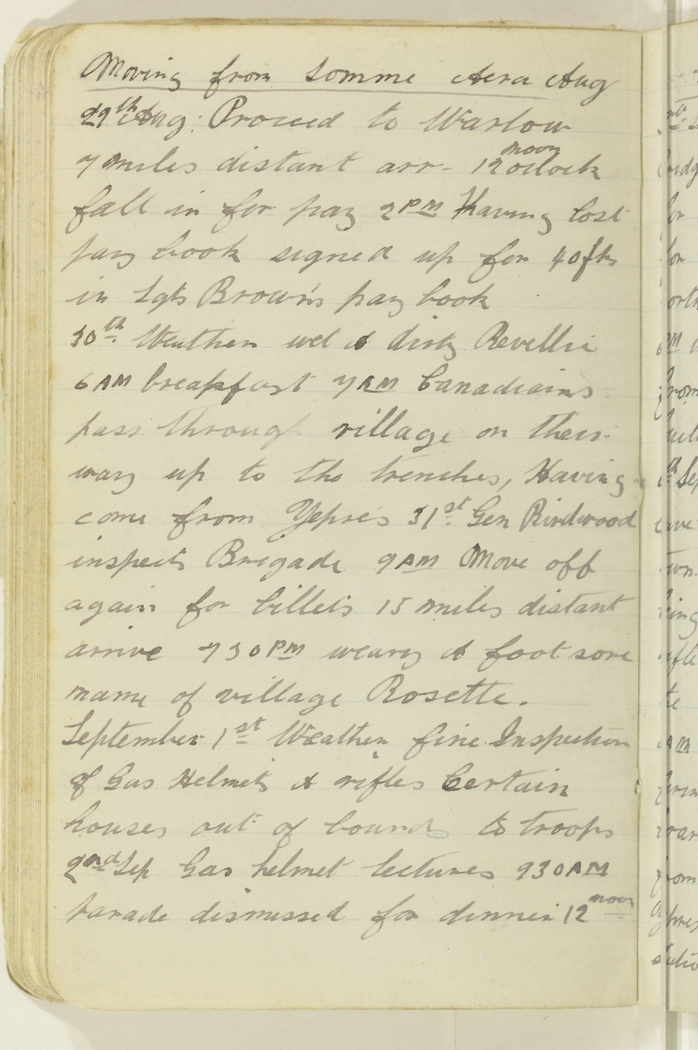 Moving from Somme Aera Aug
29th Aug: Proceed to Warlow
7 miles distant arr- 12 noon oclock
fall in for pay 2PM Having lost
pay book signed up for 40 fks
in Sgts Brown's pay book
30th Weather wet & dirty Revellie
6AM breakfast 7AM Canadiains
pass through village on their
way up to the trenches, Having
come from Yepres 31st Gen Birdwood
inspects Brigade 9AM Move off
again for billets 15 miles distant
arrive 730PM weary & foot sore
name of village Rosette.
September 1st Weather fine Inspection
of Gas Helmets & rifles Certain
houses out of bounds to troops
2nd Sep Gas helmet lectures 930AM
Parade dismissed for dinner 12 noon